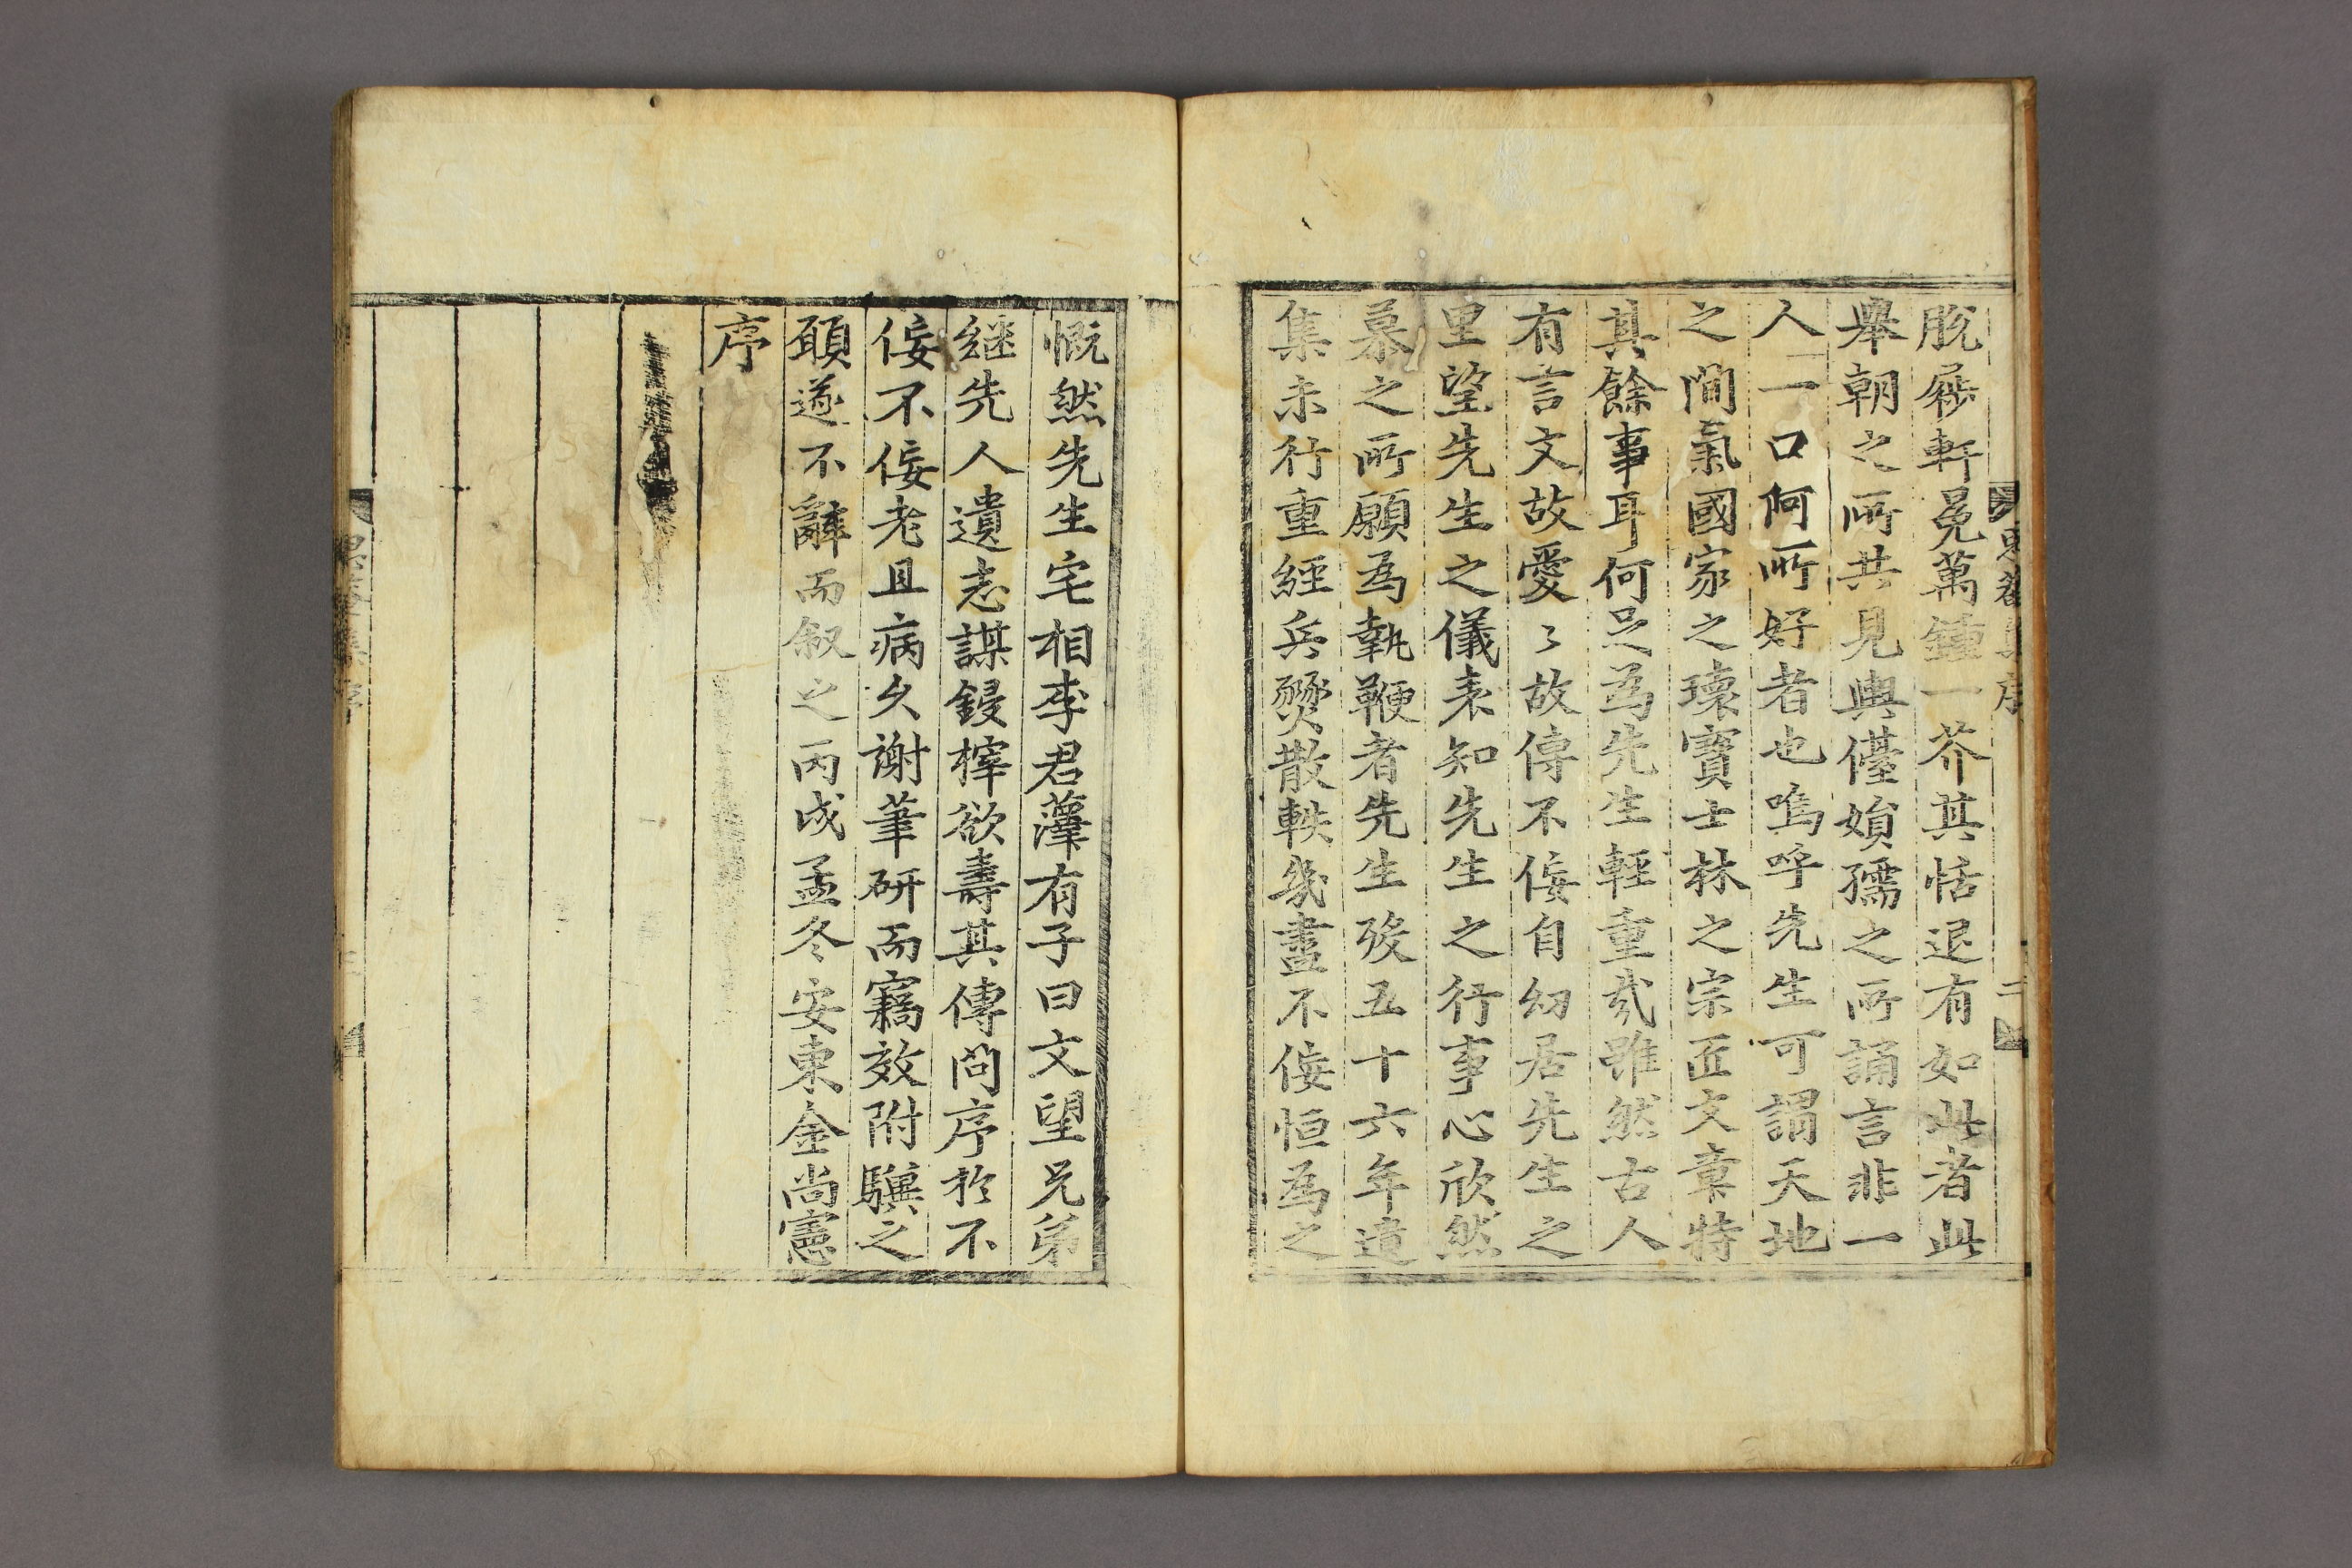 脫屣軒冕萬鍾一芥其恬退有如此者此
擧朝之所共見輿儓㜏孺之所誦言非一
人一口阿所好者也嗚呼先生可謂天地
之間氣國家之瓌寶士林之宗匠文章特
其餘事耳何足爲先生輕重㢤雖然古人
有言文故愛〻故傳不佞自㓜居先生之
里望先生之儀表知先生之行事心欣然
慕之所願爲執鞭者先生歿五十六年遺
集未行重經兵燹散軼㡬盡不佞恒爲之
慨然先生宅相李君藫有子曰文望兄弟
継先人遺志謀鋟榟欲壽其傳問序於不
佞不佞老且病久謝筆硏而竊效附驥之
願遂不辭而叙之丙戌孟冬安東金尚憲
序